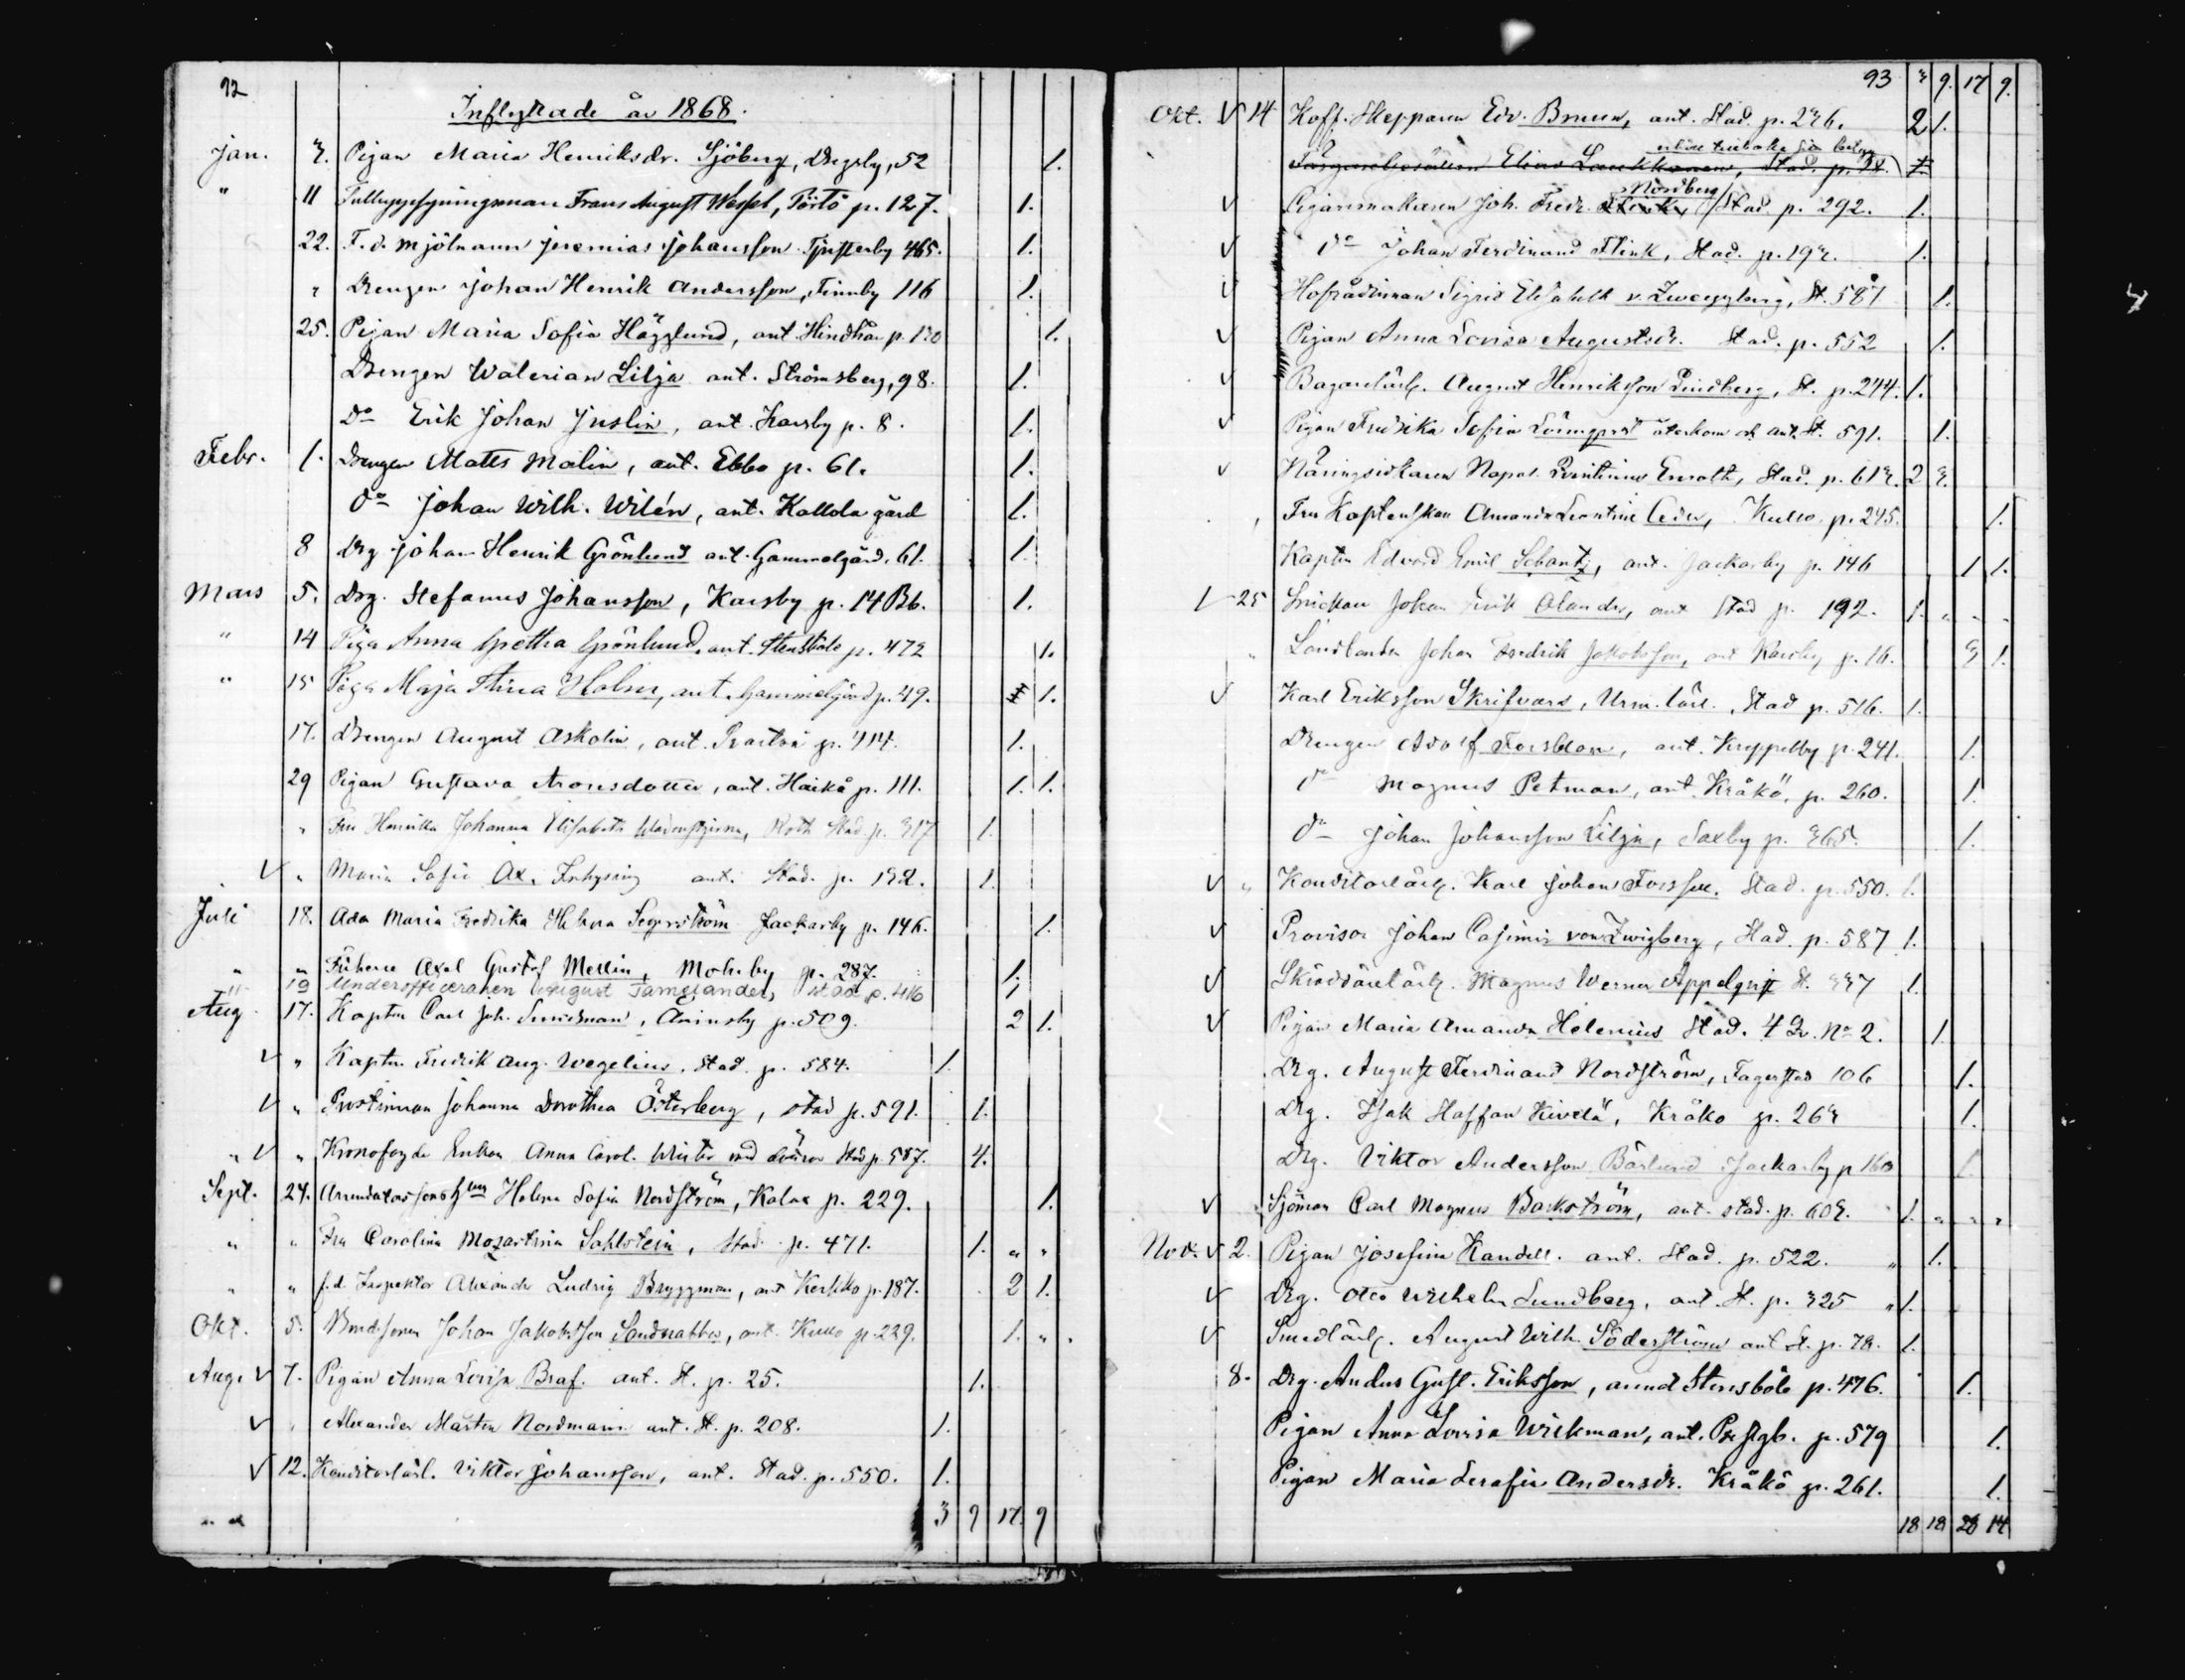 92
Inflyttade år 1868.
Jan. 7. Pigan Maria Henriksdr. Sjöberg, Dregsby, 52 1.
" 11 Tulluppsyningsman Frans August Wessel, Pörtö p. 127. 1.
22. F.d. mjölnaren Jeremias Johansson Tjusterby 465. 1.
" Drengen Johan Henrik Andersson, Finnby 116 1.
25. Pigan Maria Sofia Hägglund, ant. Hindhår p. 130 1.
Drengen Walerian Lilja ant. Strömsberg, 98. 1.
Do Erik Johan Juslin, ant. Karsby p. 8. 1.
Febr. 1. Drengen Matts Malin, ant. Ebbo p. 61. 1.
do Johan Wilh. Wilén, ant. Kallola gård 1.
8 Drg Johan Henrik Grönlund ant. Gammelgård, 61. 1.
Mars 5. Drg. Stefanus Johansson, Karsby p. 14 Bb. 1.
" 14 Piga Anna Gretha Grönlund, ant. Stensböle p. 472 1.
" 15 Piga Maja Stina Holm, ant. Gammelgård p. 49. 1.
17. Drengen August Askolin, ant. Svartså p. 414. 1.
29 Pigan Gustava Aronsdotter, ant. Haikå p. 111. 1. 1.
" Fru Henrika Johanna Elisabeth Roth Stad p. 317 1.
V " Maria Sofia Ax. ant. Stad. p. 192. 1.
Juli 18. Ada Maria Fredrika Helena Segerström Jackarby p. 146. 1.
" " Axel Gustaf Mellin, Molnby p. 287. 1.
" 19 Underofficeraren August Tamelander, stad p. 416 1
Aug. 17. Kapten Carl Joh. Aminsby p. 509. 2 1.
V " Kapten Fredrik Aug. Wegelius, Stad. p. 584. 1.
V " Prostinnan Johanna Dorothea Österberg, stad p. 591. 1.
" V " Kronofogde Enkan Anna Carol. Winter med döttrar Stad p. 587. 4.
Sept. 24. Helena Sofia Nordström, Kalax p. 229. 1.
" " Fru Carolina Mozartina Sahlstein, Stad p. 471. 1. " "
" " f.d. Inspektor Alexander Ludvig Bryggman, ant Kerkko p. 187. 2 1.
Okt. 5. Bondsonen Johan Jakobsson Sandnabba, ant. Kullo p. 229. 1. " "
Aug. V 7. Pigan Anna Lovisa Braf. ant. St. p. 25. 1.
V " Alexander Mårten Nordmann ant. St. p. 208. 1.
V 12. Konditorlärl. Viktor Johansson, ant. Stad. p. 550. 1.
3 9 17. 9
93 3 9. 17 9.
Okt. V 14 Koff. Skepparen Edv. Bruun, ant. Stad. p. 276. 2 1.
Elias Laukkanen, Stad. p. 1.
Nordberg
V Joh. Fredr. Stad. p. 292. 1.
V do Johan Ferdinand Flink, Stad. p. 197. 1.
V Hofrådinnan Sigrid Elisabeth v. Zweygberg, St. 587 1.
V Pigan Anna Lovisa Augustsdr. Stad. p. 552 1.
V Bagarelärl. August Henriksson Lindberg, St. p. 244. 1.
V Pigan Fredrika Sofia Lönnqvist återkom och ant. St. 591. 1.
V Näringsidkaren Napol. Enroth, Stad. p. 617. 2 3.
Fru Kaptenskan Amanda Leontine Ceder, Kullo p. 245. 1.
Kapten Edvard Emil Schantz, ant. Jackarby p. 146 1 1.
V 25 Snickare Johan Erik Olander, ant Stad p. 192. 1. " " "
" Johan Fredrik Jakobsson, ant Karsby p. 16. 3 1.
V Karl Eriksson Skrifvars, Urm. lärl., Stad p. 516. 1.
Drengen Adolf Forsblom, ant. Kreppelby p. 241. 1.
do Magnus Petman, ant. Kråkö, p. 260. 1.
do Johan Johansson Lilja, Saxby p. 365. 1.
V " Konditorlärl. Karl Johan Forssell. Stad. p. 550. 1.
V Provisor Johan Casimir von Zwigberg, Stad. p. 587 1.
V Skräddarelärl. Magnus Werner Appelqvist St. 337 1.
V Pigan Maria Amanda Helenius Stad. 4 Qv. No 2. 1.
Drg. August Ferdinand Nordström, Fagerstad 106 1.
Drg. Isak Staffan Kivelä, Kråkö p. 267 1.
Drg. Viktor Andersson Bärlund Jackarby p. 160 1.
V Sjöman Carl Magnus Backström, ant. stad. p. 607. 1. " " "
Nov. V 2. Pigan Josefina Kandell. ant. Stad. p. 522. " 1.
V Drg. Otto Wilhelm Lundberg, ant. St. p. 325 1.
V Smedlärl. August Wilh. Söderström ant St. p. 78. 1.
8. Drg. Anders Gust. Eriksson, Stensböle p. 476. 1.
Pigan Anna Lovisa Wickman, ant. Prestgb. p. 579 1.
Pigan Maria Serafia Andersdr. Kråkö p. 261. 1.
18 18 28 14